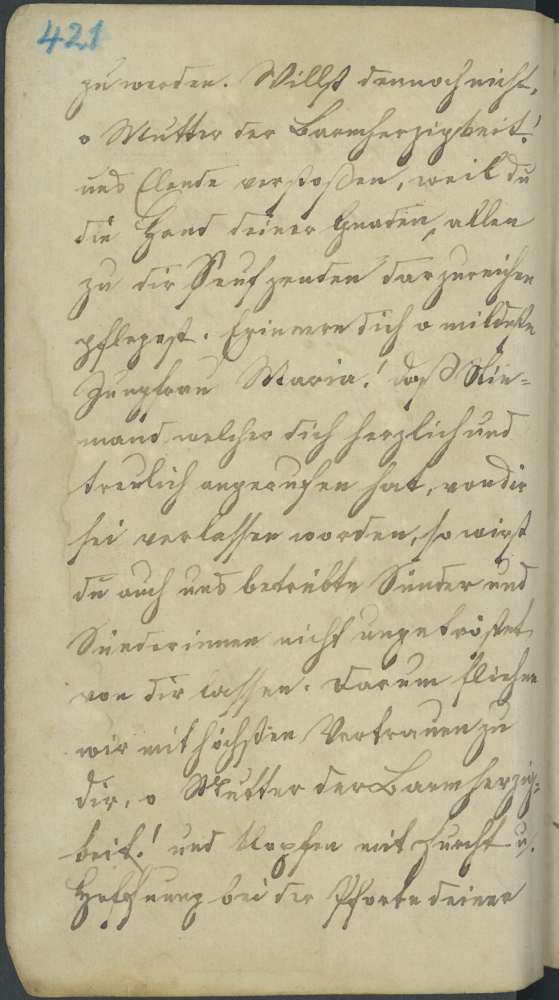 421
zu werden. Willst dennoch nicht,
o Mutter der Barmherzigkeit!
uns Elende verstoßen, weil du
die Hand deiner Gnaden, allen
zu dir Seufzenden darzureichen
pflegest. Erinnere dich o mildeste
Jungfrau Maria! daß Nie=
mand welcher dich herzlich und
treulich angerufen hat, von dir
sei verlassen worden, so wirst
du auch uns betrübte Sünder und
Sünderinnen nicht ungetröstet
von dir lassen. Darum fliehen
wir mit höchsten Vertrauen zu
dir, o Mutter der Barmherzig=
keit! und klopfen mit Furcht u.
Hoffnung bei der Pforte deiner